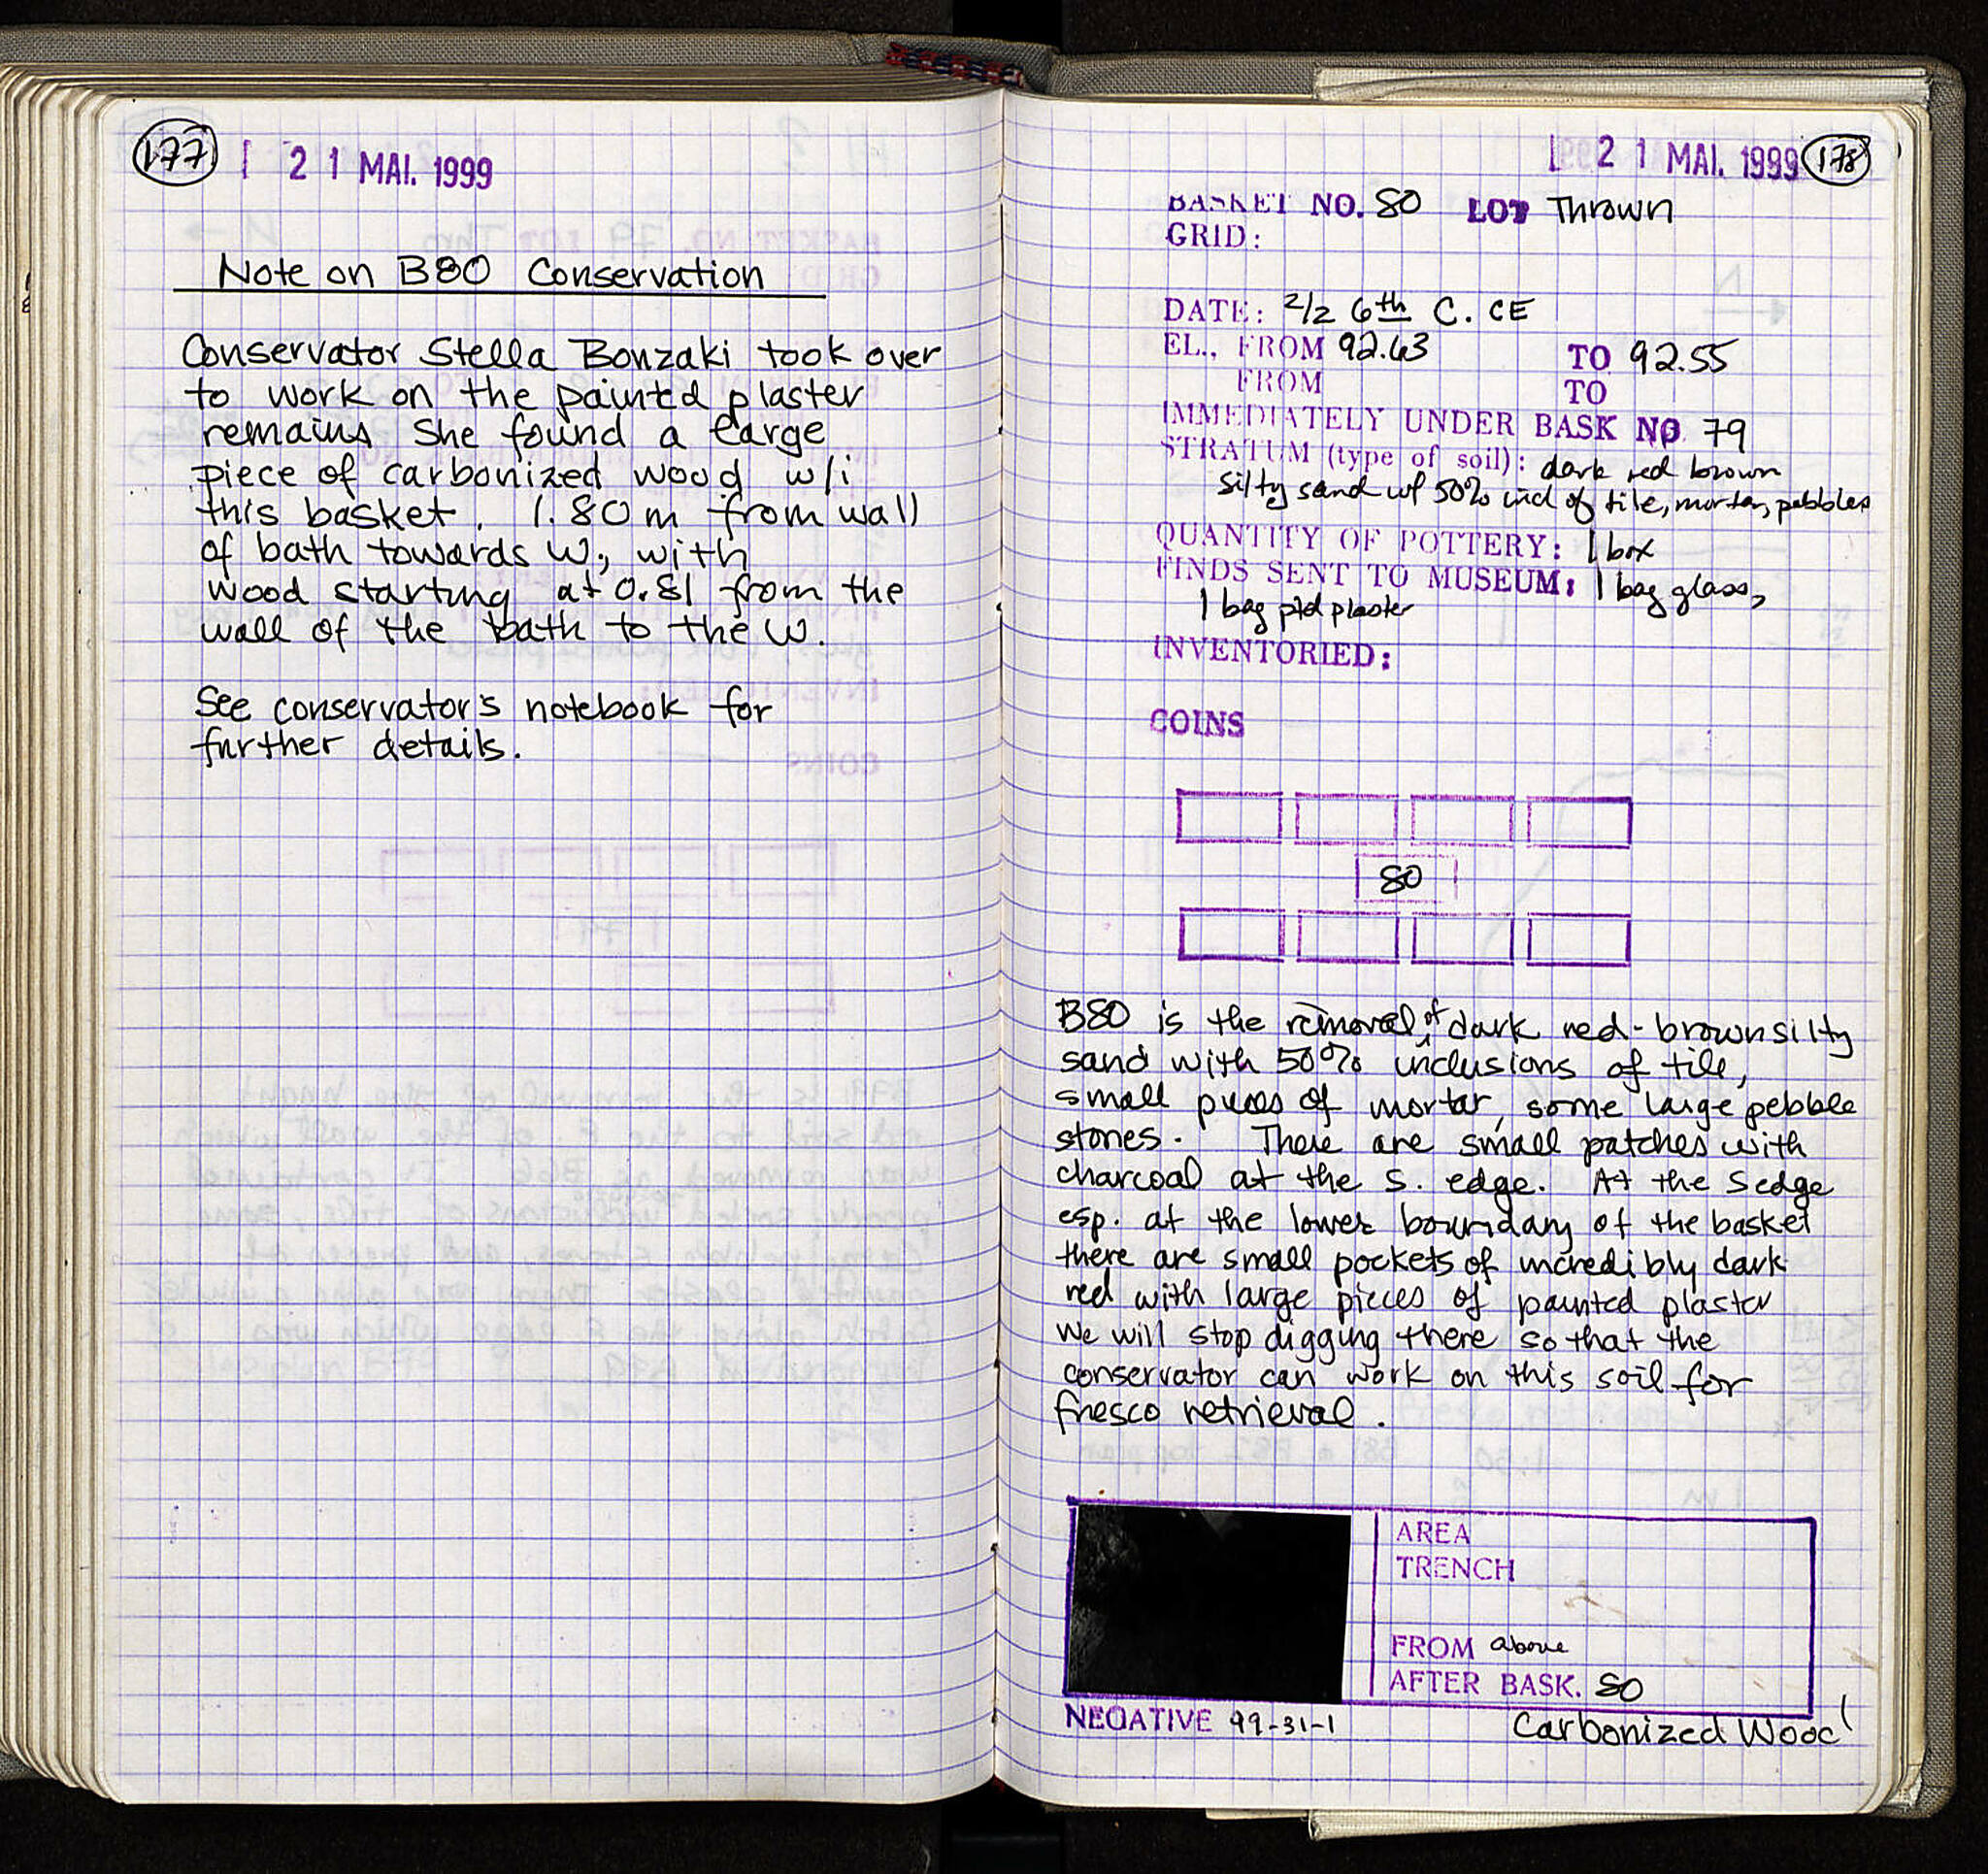 177 21 MAI. 1999
Note on B80 Conservation
Conservator Stella Bonzaki took over
to work on the painted plaster
remains She found a large
piece of carbonized wood w/i
this basket. 1.80m from wall
of bath towards W, with
wood starting at 0.81 from the
wall of the bath to the W.
See conservator's notebook for
further details.
21 MAI. 1999 178
BASKET NO. 80 LOT Thrown
GRID:
DATE: 2/2 6th C. CE
EL., FROM 92.63 TO 92.55
FROM TO
IMMEDIATELY UNDER BASK NO 79
STRATUM (type of soil): dark red brown
silty sand w/ 50% incl of tile, mortar, pebbles
QUANTITY OF POTTERY: 1 box
FINDS SENT TO MUSEUM: 1 bag glass,
1 bag ptd plaster
INVENTORIED:
COINS
80
B80 is the removal of dark red-brown silty
sand with 50% inclusions of tile,
small pieces of mortar, some large pebble
stones. There are small patches with
charcoal at the S. edge. At the S edge
esp. at the lower boundary of the basket
there are small pockets of incredibly dark
red with large pieces of painted plaster
We will stop digging there so that the
conservator can work on this soil for
fresco retrieval.
AREA
TRENCH
FROM above
AFTER BASK. 80
NEGATIVE 99-31-1 Carbonized Wood